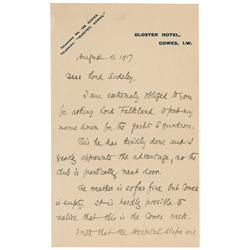 TELEPHONE No. 188 COWES.
TELEGRAMS: "GLOSTER, COWES."
GLOSTER HOTEL,
COWES, I.W.
August 11. 1917
Dear Lord Sudeley,
I am extremely obliged to you
for asking Lord Falkland to put my
name down for the Yacht Squadron.
This he has kindly done and I
greatly appreciate the advantage, as the
club is practically next door.
The weather is so far fine but Cowes
is empty. it is hardly possible to
realise that this is the Cowes week.
that the Hospital Ships are